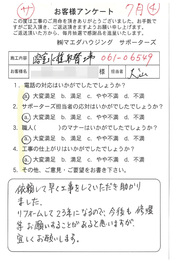 サ
7月
お客様アンケート
この度は工事のご用命を頂きありがとうございました。お手数で
すがご記入頂き、ご返送頂けますようお願い申し上げます。
ご返送頂いた方から、毎月抽選で感謝品を進呈いたします。
㈱マエダハウジング サポーターズ
施工内容
061-06549
お客様名
様
担当
大山
1. 電話の対応はいかがでしたでしょうか?
大変満足 B. 満足 C. やや不満 D. 不満
2. サポーターズ担当者の応対はいかがでしたでしょうか?
大変満足 B. 満足 C. やや不満 D. 不満
3. 職人( )のマナーはいかがでしたでしょうか?
大変満足 B. 満足 C. やや不満 D. 不満
4. 工事の仕上がりはいかがでしたでしょうか?
大変満足 B. 満足 C. やや不満 D. 不満
5. その他、ご意見・ご要望をお書き下さい。
依頼して早く工事をしていただき助かり
ました。
リフォームして23年になるので、今後も修理
等お願いすることがあると思いますが、
宜しくお願いします。